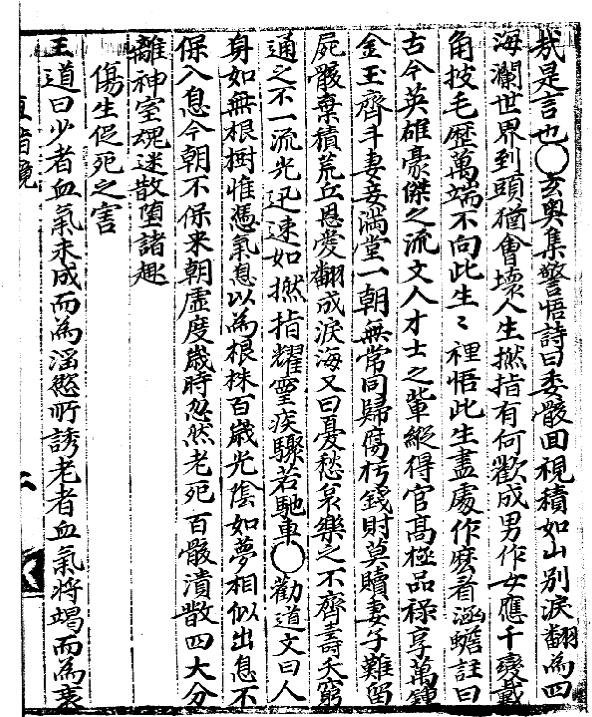 哉是言也○玄奧集警悟詩曰委骸回視積如山別淚翻為四
海瀾世界到頭猶會壞人生撚指有何歡成男作女應千變戴
角披毛歷萬端不向此生〻裡悟此生盡處作麽看涵蟾註曰
古今英雄豪傑之流文人才士之輩縱得官高極品祿享萬鍾
金玉齊斗妻妾滿堂一朝無常同歸腐朽錢財莫贖妻子難留
屍骸棄積荒丘恩愛翻成淚海又曰憂愁哀樂之不齊壽夭窮
通之不一流光迅速如撚指耀電疾驟若馳車○勸道文曰人
身如無根樹惟憑氣息以為根株百歲光陰如夢相似出息不
保入息今朝不保来朝虛度歲時忽然老死百骸潰散四大分
離神室魂迷散墮諸趣
傷生促死之害
王道曰少者血氣未成而為淫慾所誘老者血氣將竭而為衰
直指鏡